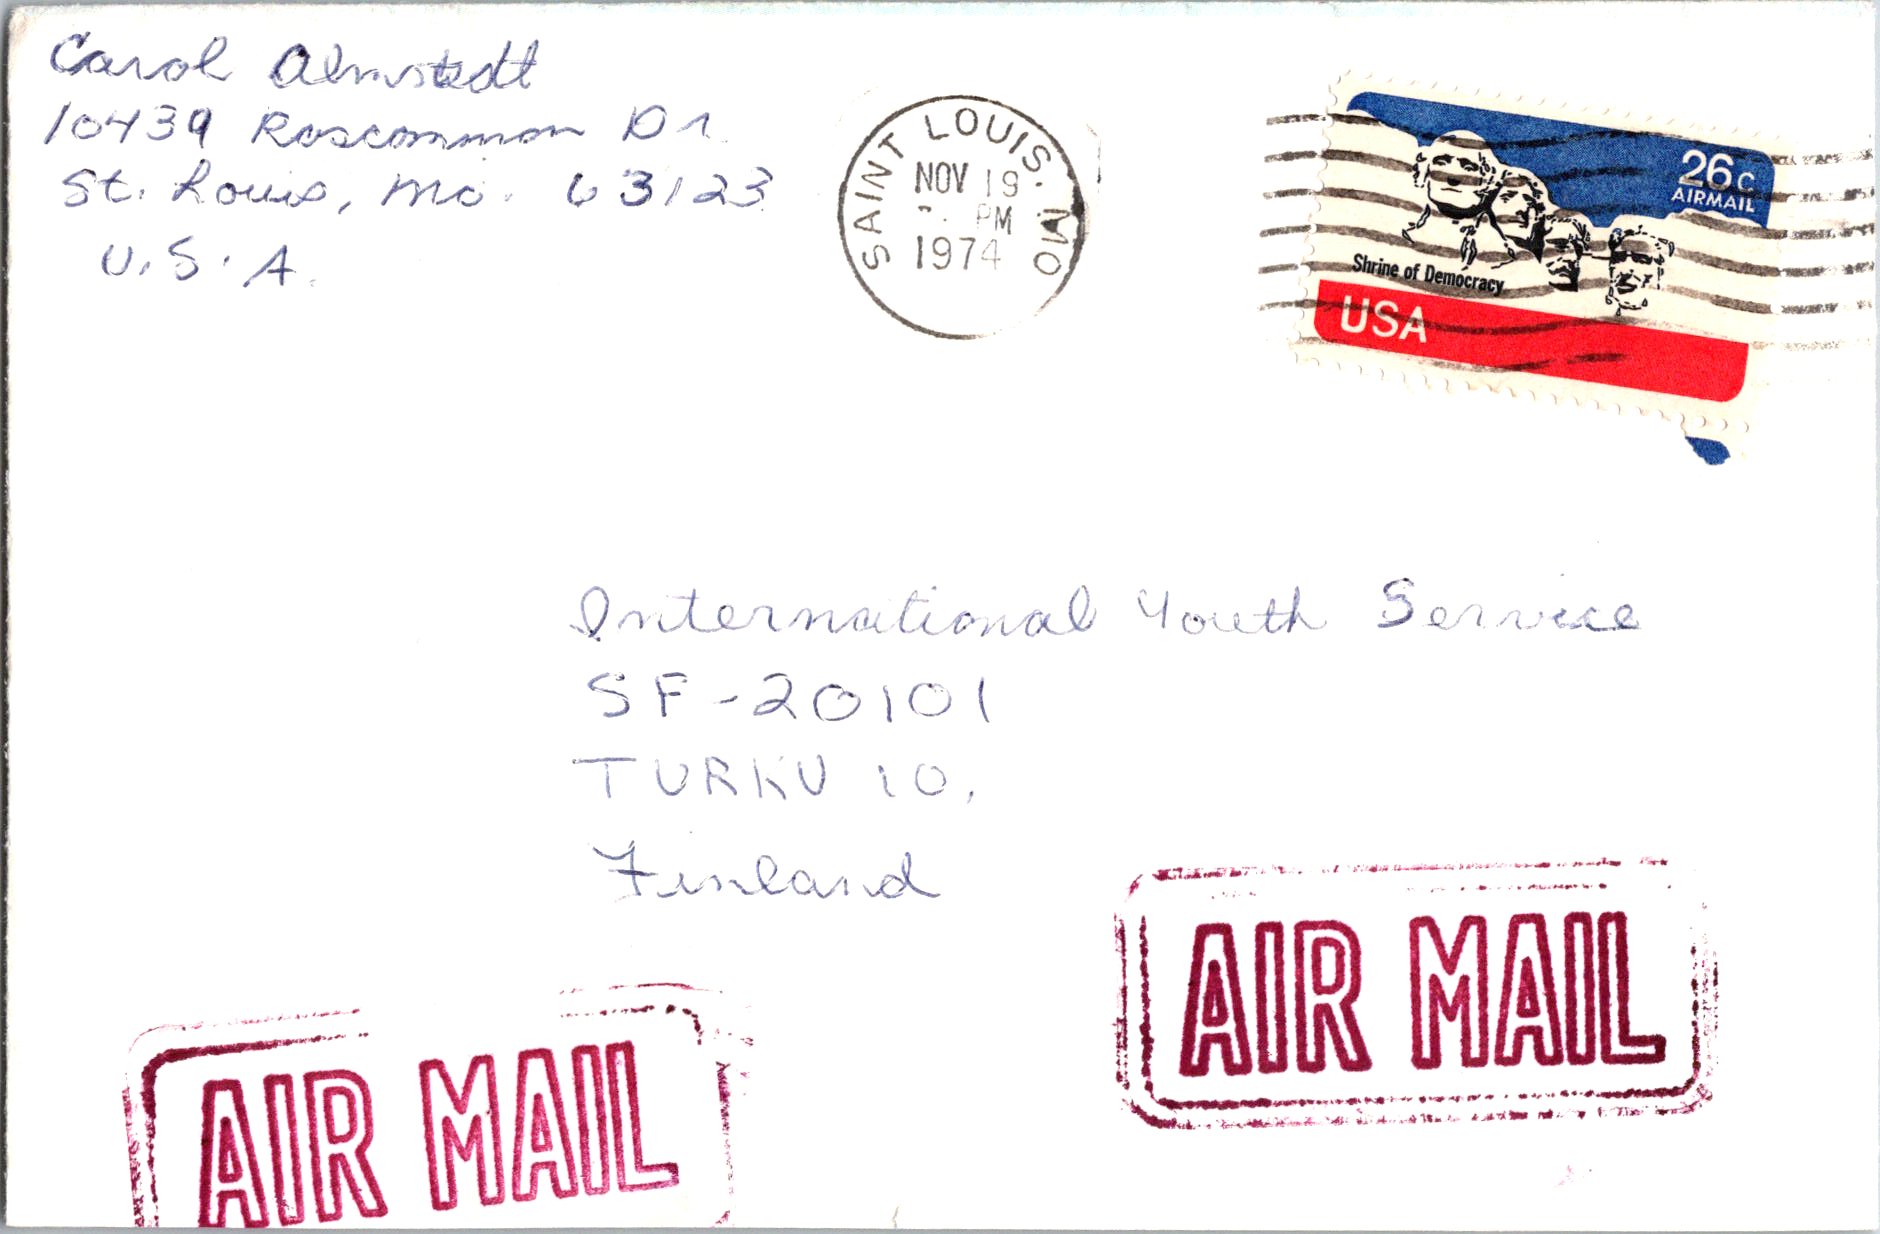 Carol Almstedt
10439 Roscommon Dr.
St. Louis, Mo. 63123
U.S.A.
SAINT LOUIS. MO
NOV 19
PM
1974
26c
AIRMAIL
Shrine of Democracy
USA
International Youth Service
SF-20101
TURKU 10,
Finland
AIR MAIL
AIR MAIL